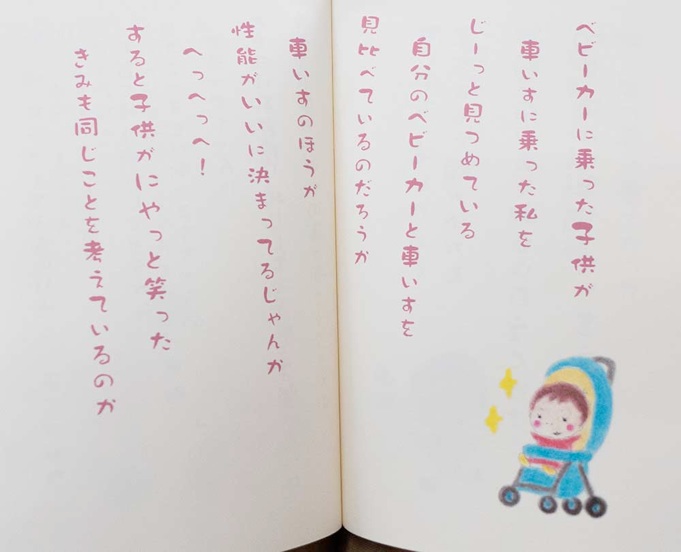 ベビーカーに乗った子供が
車いすに乗った私を
じーっと見つめている
自分のベビーカーと車いすを
見比べているのだろうか
車いすのほうが
性能がいいに決まってるじゃんか
へっへっへ！
すると子供がにやっと笑った
きみも同じことを考えているのか